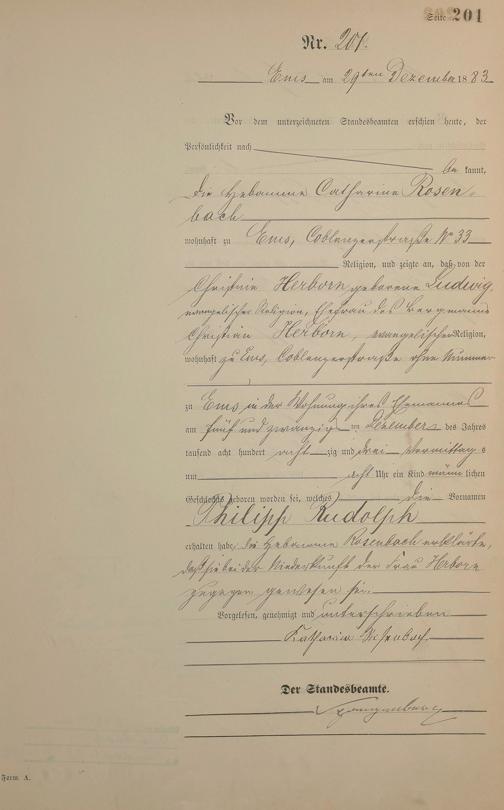 Seite 201
Nr. 201.
Ems am 29ten Dezember 1883
Vor dem unterzeichneten Standesbeamten erschien heute, der
Persönlichkeit nach
be kannt,
die Hebamme Catharine Rosen-
bach
wohnhaft zu Ems, Coblenzerstraße No 33
Religion, und zeigte an, daß von der
Christine Herborn geborene Ludwig,
evangelischer Religion, Ehefrau des Bergmanns
Christian Herborn, evangelischer Religion,
wohnhaft zu Ems, Coblenzerstraße ohne Nummer
zu Ems in der Wohnung ihres Ehemannes
am fünf und zwanzig ten Dezember des Jahres
tausend acht hundert acht zig und drei Vormittags
um acht Uhr ein Kind männ lichen
Geschlechts geboren worden sei, welches die Vornamen
Philipp Rudolph
erhalten habe, die Hebamme Rosenbach erklärte,
daß sie bei der Niederkunft der Frau Herborn
zugegen gewesen sei.
Vorgelesen, genehmigt und unterschrieben
Katharina
Der Standesbeamte.
Form. A.